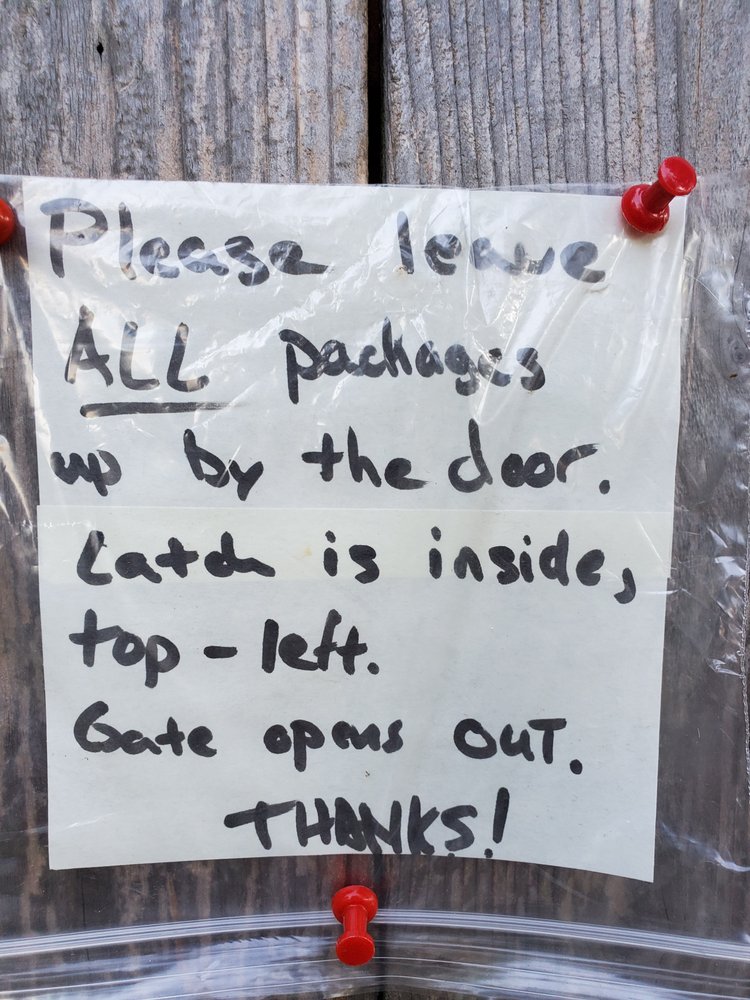 Please leave
ALL packages
up by the door.
Latch is inside,
top-left.
Gate opens OUT.
THANKS!